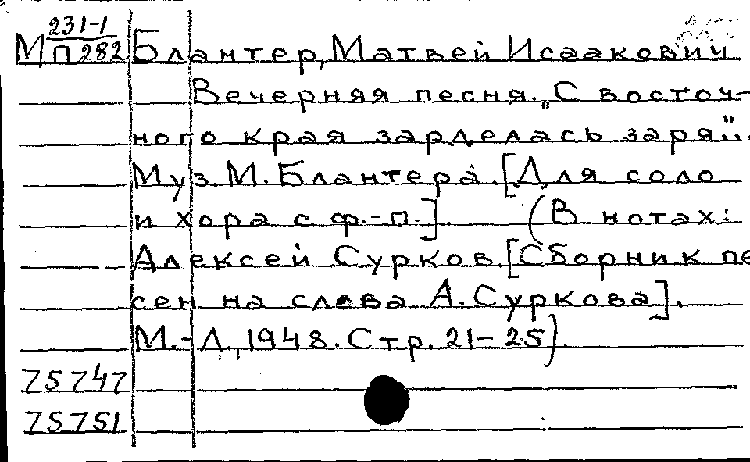 231-1
М П 282 Блантер, Матвей Исаакович
Вечерняя песня. „С восточ-
ного края зарделась заря".
Муз. М. Блантера. [Для соло
и хора с ф.-п.] (В нотах:
Алексей Сурков. [Сборник пе
сен на слова А. Суркова].
М.-Л., 1948. Стр. 21-25)
75747
75751